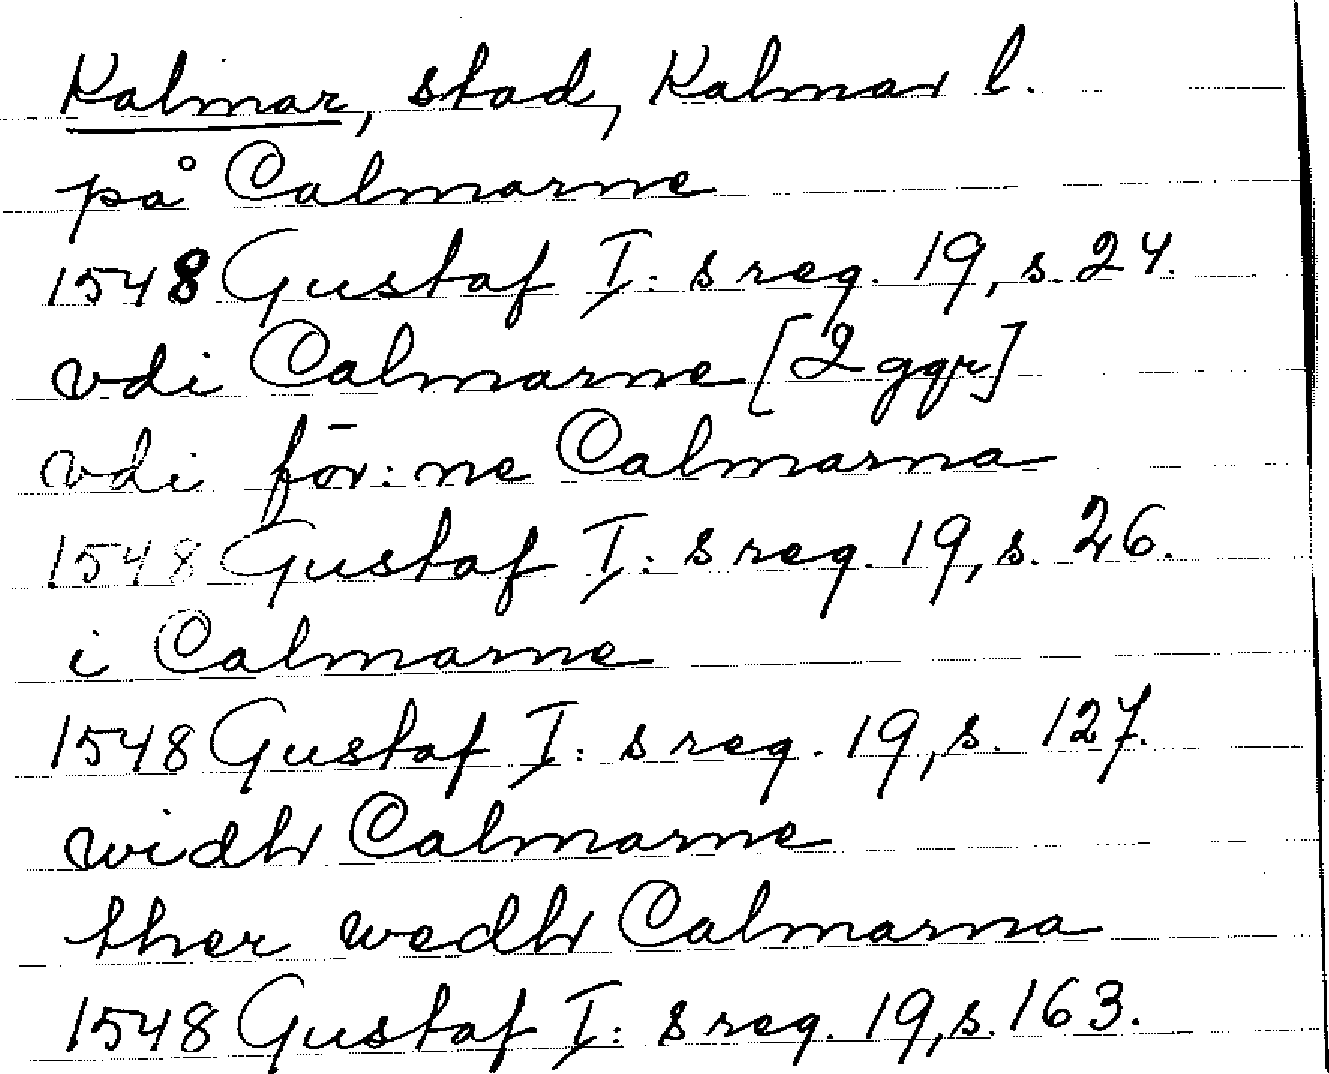 Kalmar, stad, Kalmar l.
på Calmarne
1548 Gustaf I: s reg. 19, s. 24.
vdi Calmarne [2 ggr]
vdi för:ne Calmarna
1548 Gustaf I: s reg. 19, s. 26.
i Calmarne
1548 Gustaf I: s reg. 19, s. 127.
widh Calmarne
ther wedh Calmarna
1548 Gustaf I: s reg. 19, s. 163.